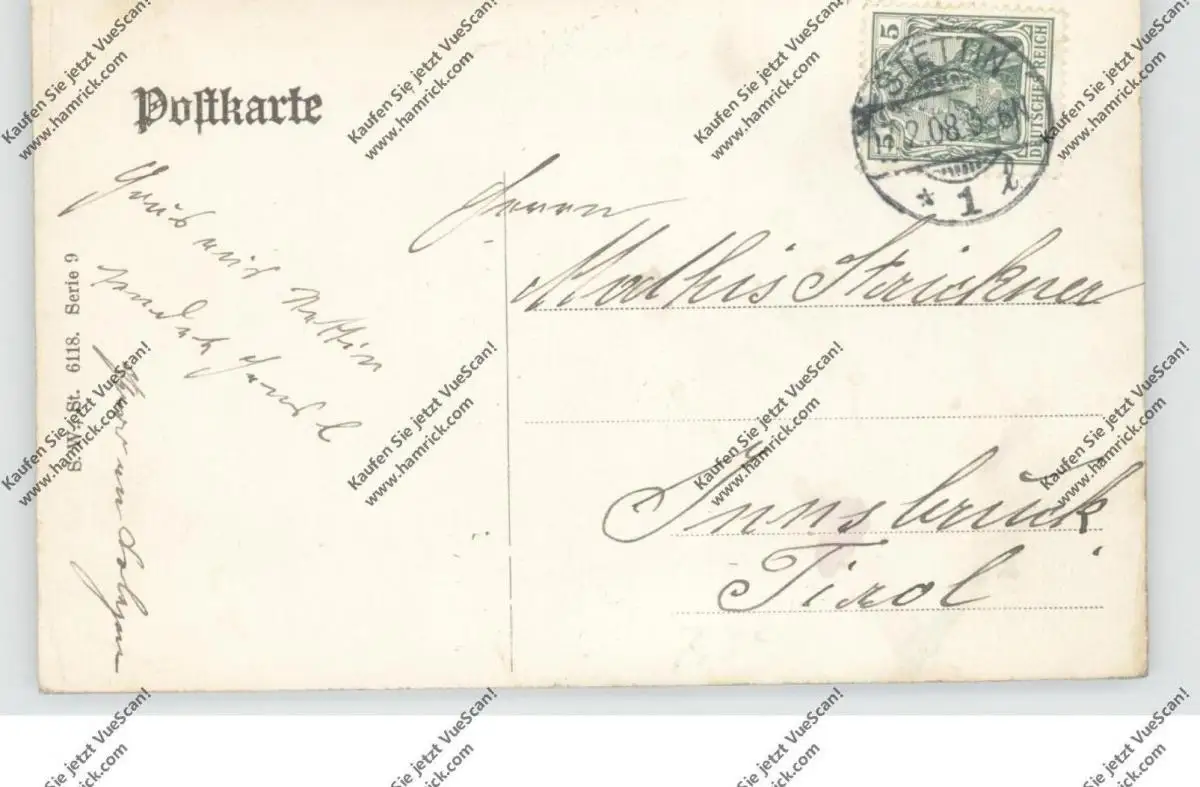 Postkarte
5
5
DEUTSCHES REICH
STETTIN
2.08.5-6N
* 1 l
Herrn
Mathis Strickner
Innsbruck
Tirol
Gruß aus Stettin
sendet
S.W.J.St. 6118. Serie 9
Kaufen Sie jetzt VueScan!
www.hamrick.com
Kaufen Sie jetzt VueScan!
www.hamrick.com
Kaufen Sie jetzt VueScan!
www.hamrick.com
Kaufen Sie jetzt VueScan!
www.hamrick.com
Kaufen Sie jetzt VueScan!
www.hamrick.com
Kaufen Sie jetzt VueScan!
www.hamrick.com
Kaufen Sie jetzt VueScan!
www.hamrick.com
Kaufen Sie jetzt VueScan!
www.hamrick.com
Sie jetzt VueScan!
rick.com
Sie jetzt VueScan!
rick.com
Sie jetzt VueScan!
rick.com
Sie jetzt VueScan!
rick.com